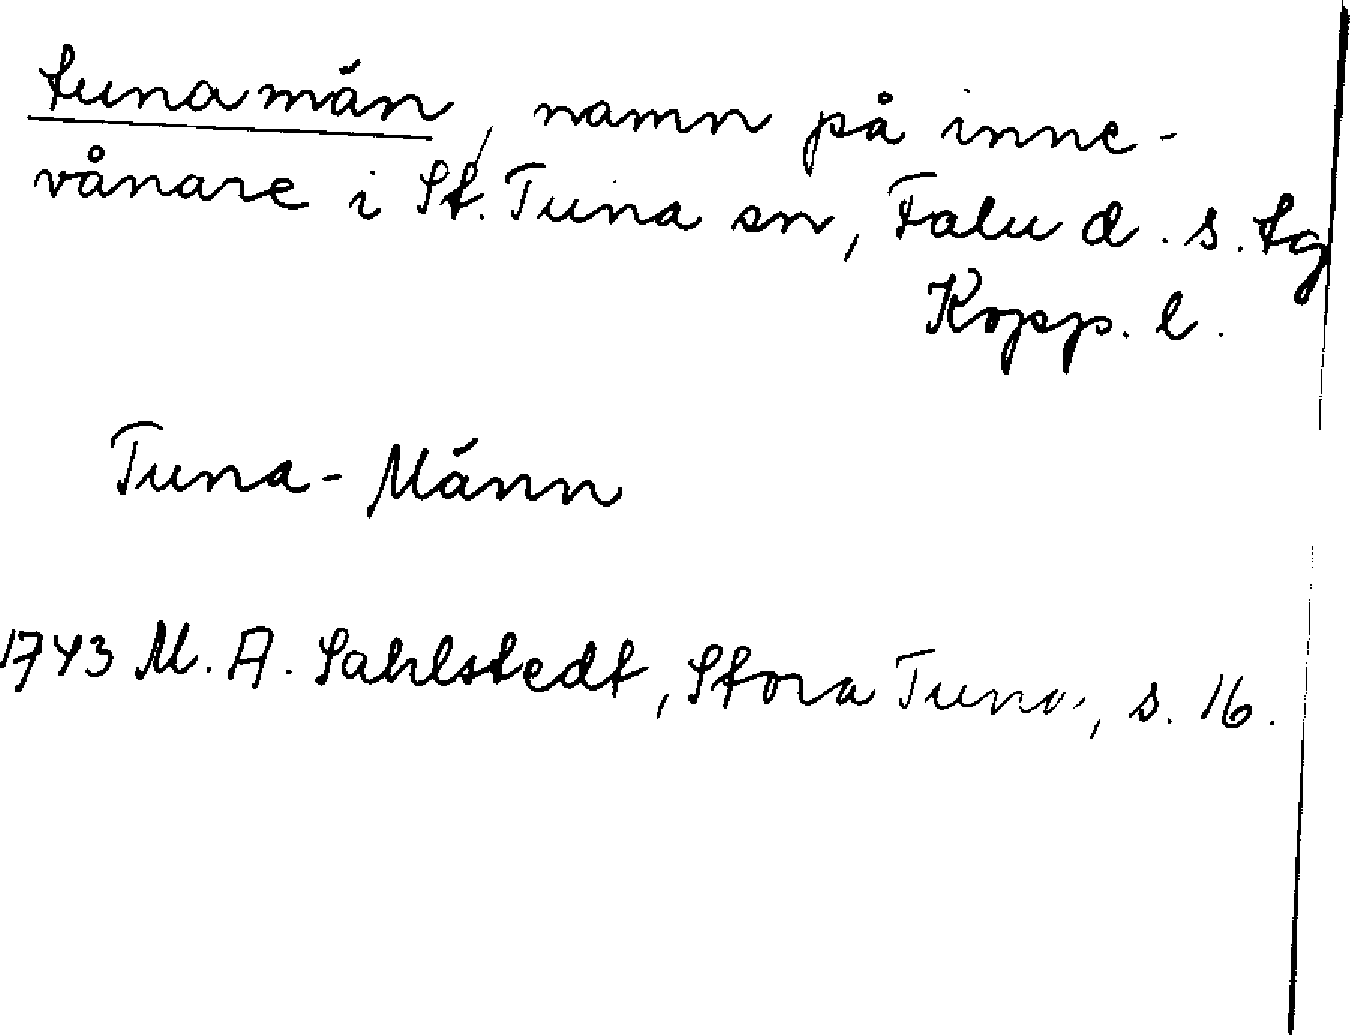 tunamän, namn på inne-
vånare i St. Tuna sn, Falu d. s. tg
Kopp. l.
Tuna-Männ
1743 M. A. Sahlstedt, Stora Tuna, s. 16.